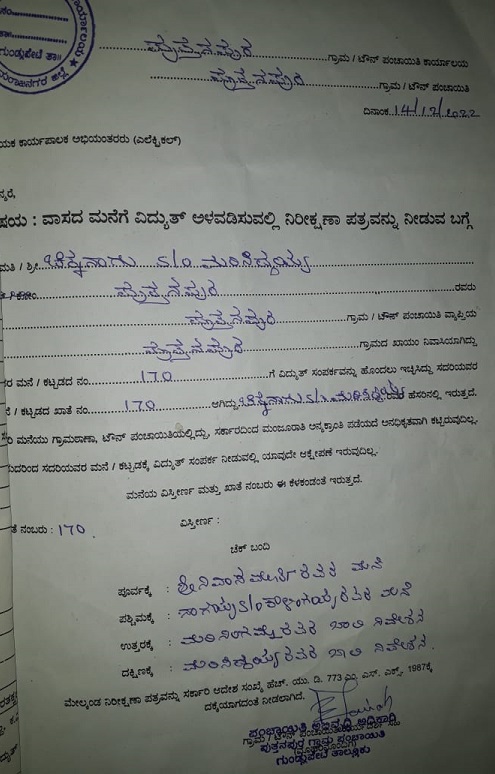 ನಂ.
ಗುಂಡ್ಲುಪೇಟೆ ತಾ॥
ಪುತ್ತನಪುರ ಗ್ರಾಮ / ಟೌನ್ ಪಂಚಾಯಿತಿ ಕಾರ್ಯಾಲಯ
ಪುತ್ತನಪುರ ಗ್ರಾಮ / ಟೌನ್ ಪಂಚಾಯಿತಿ
ದಿನಾಂಕ 14/12/2022
ಯಕ ಕಾರ್ಯಪಾಲಕ ಅಭಿಯಂತರರು (ಎಲೆಕ್ಟ್ರಿಕಲ್)
ನ್ಯರೆ,
ಷಯ : ವಾಸದ ಮನೆಗೆ ವಿದ್ಯುತ್ ಅಳವಡಿಸುವಲ್ಲಿ ನಿರೀಕ್ಷಣಾ ಪತ್ರವನ್ನು ನೀಡುವ ಬಗ್ಗೆ
ಮತಿ / ಶ್ರೀ ಚಿಕ್ಕನಾಗು S/o ಮರಿಸಿದ್ದಯ್ಯ
ಪುತ್ತನಪುರ ರವರು
ಪುತ್ತನಪುರ ಗ್ರಾಮ / ಟೌನ್ ಪಂಚಾಯಿತಿ ವ್ಯಾಪ್ತಿಯ
ಪುತ್ತನಪುರ ಗ್ರಾಮದ ಖಾಯಂ ನಿವಾಸಿಯಾಗಿದ್ದು
ರರ ಮನೆ / ಕಟ್ಟಡದ ನಂ. 170 ಗೆ ವಿದ್ಯುತ್ ಸಂಪರ್ಕವನ್ನು ಹೊಂದಲು ಇಚ್ಛಿಸಿದ್ದು ಸದರಿಯವರ
ನೆ / ಕಟ್ಟಡದ ಖಾತೆ ನಂ. 170 ಆಗಿದ್ದು ಚಿಕ್ಕನಾಗು S/o ಮರಿಸಿದ್ದಯ್ಯ ಹೆಸರಿನಲ್ಲಿ ಇರುತ್ತದೆ.
ಸದರಿ ಮನೆಯು ಗ್ರಾಮಠಾಣಾ, ಟೌನ್ ಪಂಚಾಯಿತಿಯಲ್ಲಿದ್ದು, ಸರ್ಕಾರದಿಂದ ಮಂಜೂರಾತಿ ಅನ್ಯಕ್ರಾಂತಿ ಪಡೆಯದೆ ಅನಧಿಕೃತವಾಗಿ ಕಟ್ಟಿರುವುದಿಲ್ಲ.
ುದರಿಂದ ಸದರಿಯವರ ಮನೆ / ಕಟ್ಟಡಕ್ಕೆ ವಿದ್ಯುತ್ ಸಂಪರ್ಕ ನೀಡುವಲ್ಲಿ ಯಾವುದೇ ಆಕ್ಷೇಪಣೆ ಇರುವುದಿಲ್ಲ.
ಮನೆಯ ವಿಸ್ತೀರ್ಣ ಮತ್ತು ಖಾತೆ ನಂಬರು ಈ ಕೆಳಕಂಡಂತೆ ಇರುತ್ತದೆ.
ತೆ ನಂಬರು : 170 ವಿಸ್ತೀರ್ಣ :
ಚೆಕ್ ಬಂದಿ
ಪೂರ್ವಕ್ಕೆ : ಶ್ರೀನಿವಾಸಮೂರ್ತಿ ರವರ ಮನೆ
ಪಶ್ಚಿಮಕ್ಕೆ : ನಾಗಯ್ಯ S/o ಕಾಳಿಂಗಯ್ಯ ರವರ ಮನೆ
ಉತ್ತರಕ್ಕೆ : ರವರ ಖಾಲಿ ನಿವೇಶನ
ದಕ್ಷಿಣಕ್ಕೆ : ಮರಿಸಿದ್ದಯ್ಯ ರವರ ಖಾಲಿ ನಿವೇಶನ.
ಮೇಲ್ಕಂಡ ನಿರೀಕ್ಷಣಾ ಪತ್ರವನ್ನು ಸರ್ಕಾರಿ ಆದೇಶ ಸಂಖ್ಯೆ ಹೆಚ್. ಯು. ಡಿ. 773 ಎಂ. ಎನ್. ಎಕ್ಸ್. 1987ಕ್ಕೆ
ದಕ್ಕೆಯಾಗದಂತೆ ನೀಡಲಾಗಿದೆ.
ಪಂಚಾಯಿತಿ ಅಭಿವೃದ್ಧಿ ಅಧಿಕಾರಿ
ಪುತ್ತನಪುರ ಗ್ರಾಮ ಪಂಚಾಯಿತಿ
ಗುಂಡ್ಲುಪೇಟೆ ತಾಲ್ಲೂಕು